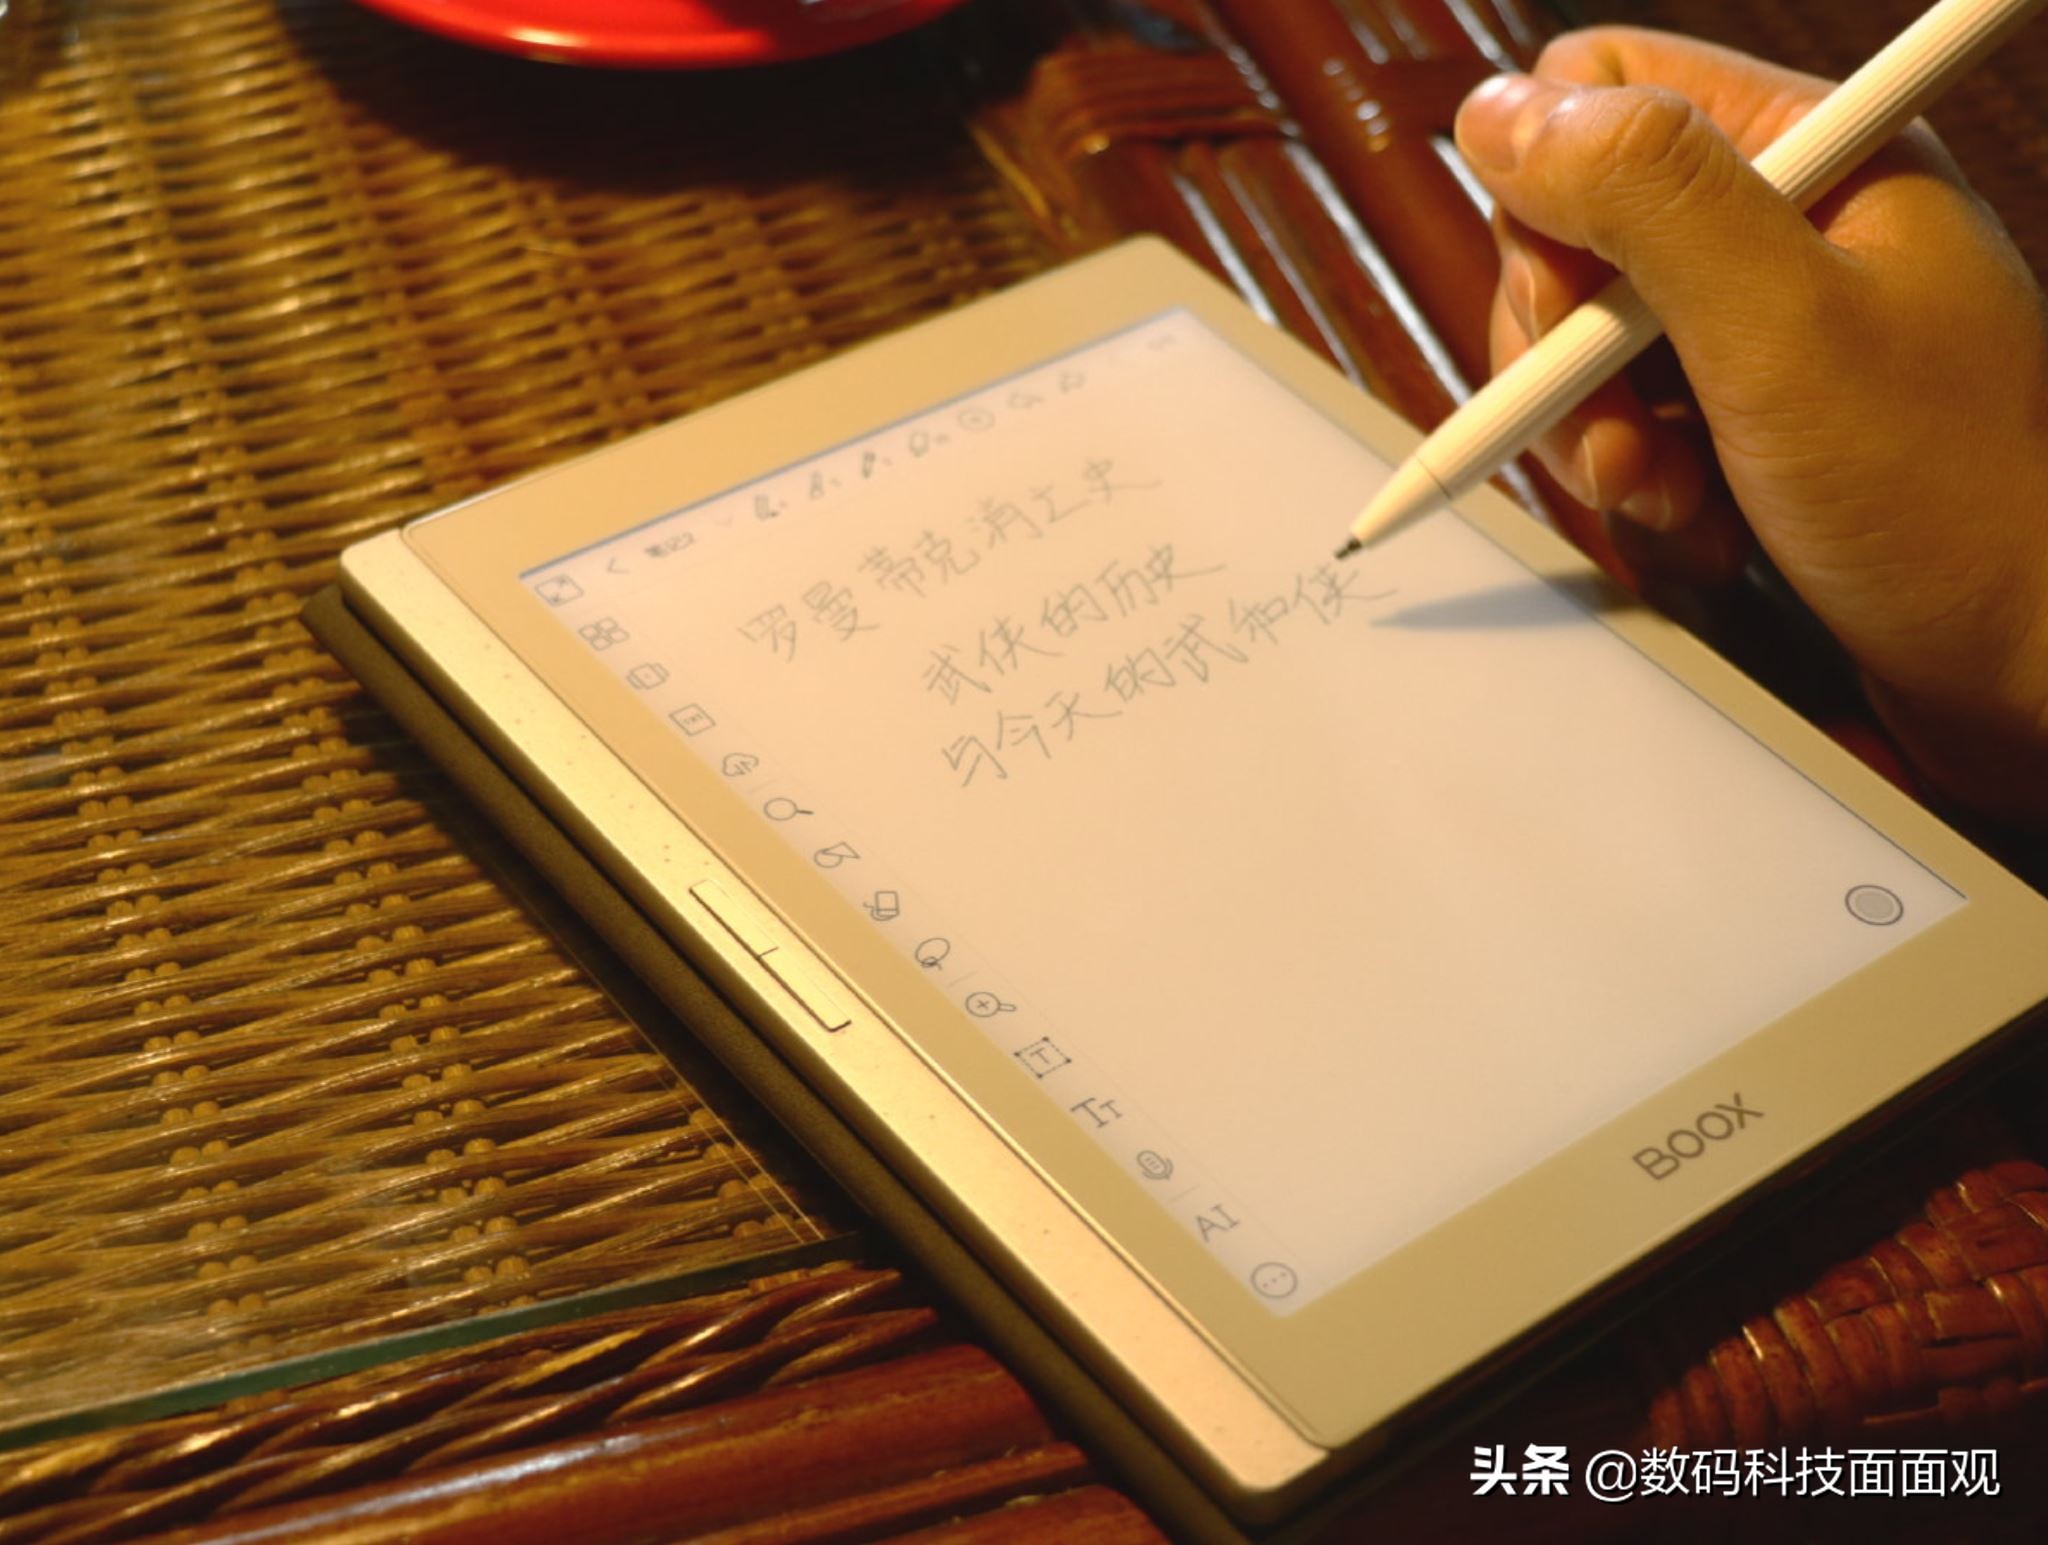 笔记2
罗曼蒂克消亡史
武侠的历史
与今天的武和侠
T
TT
AI
BOOX
头条 @数码科技面面观